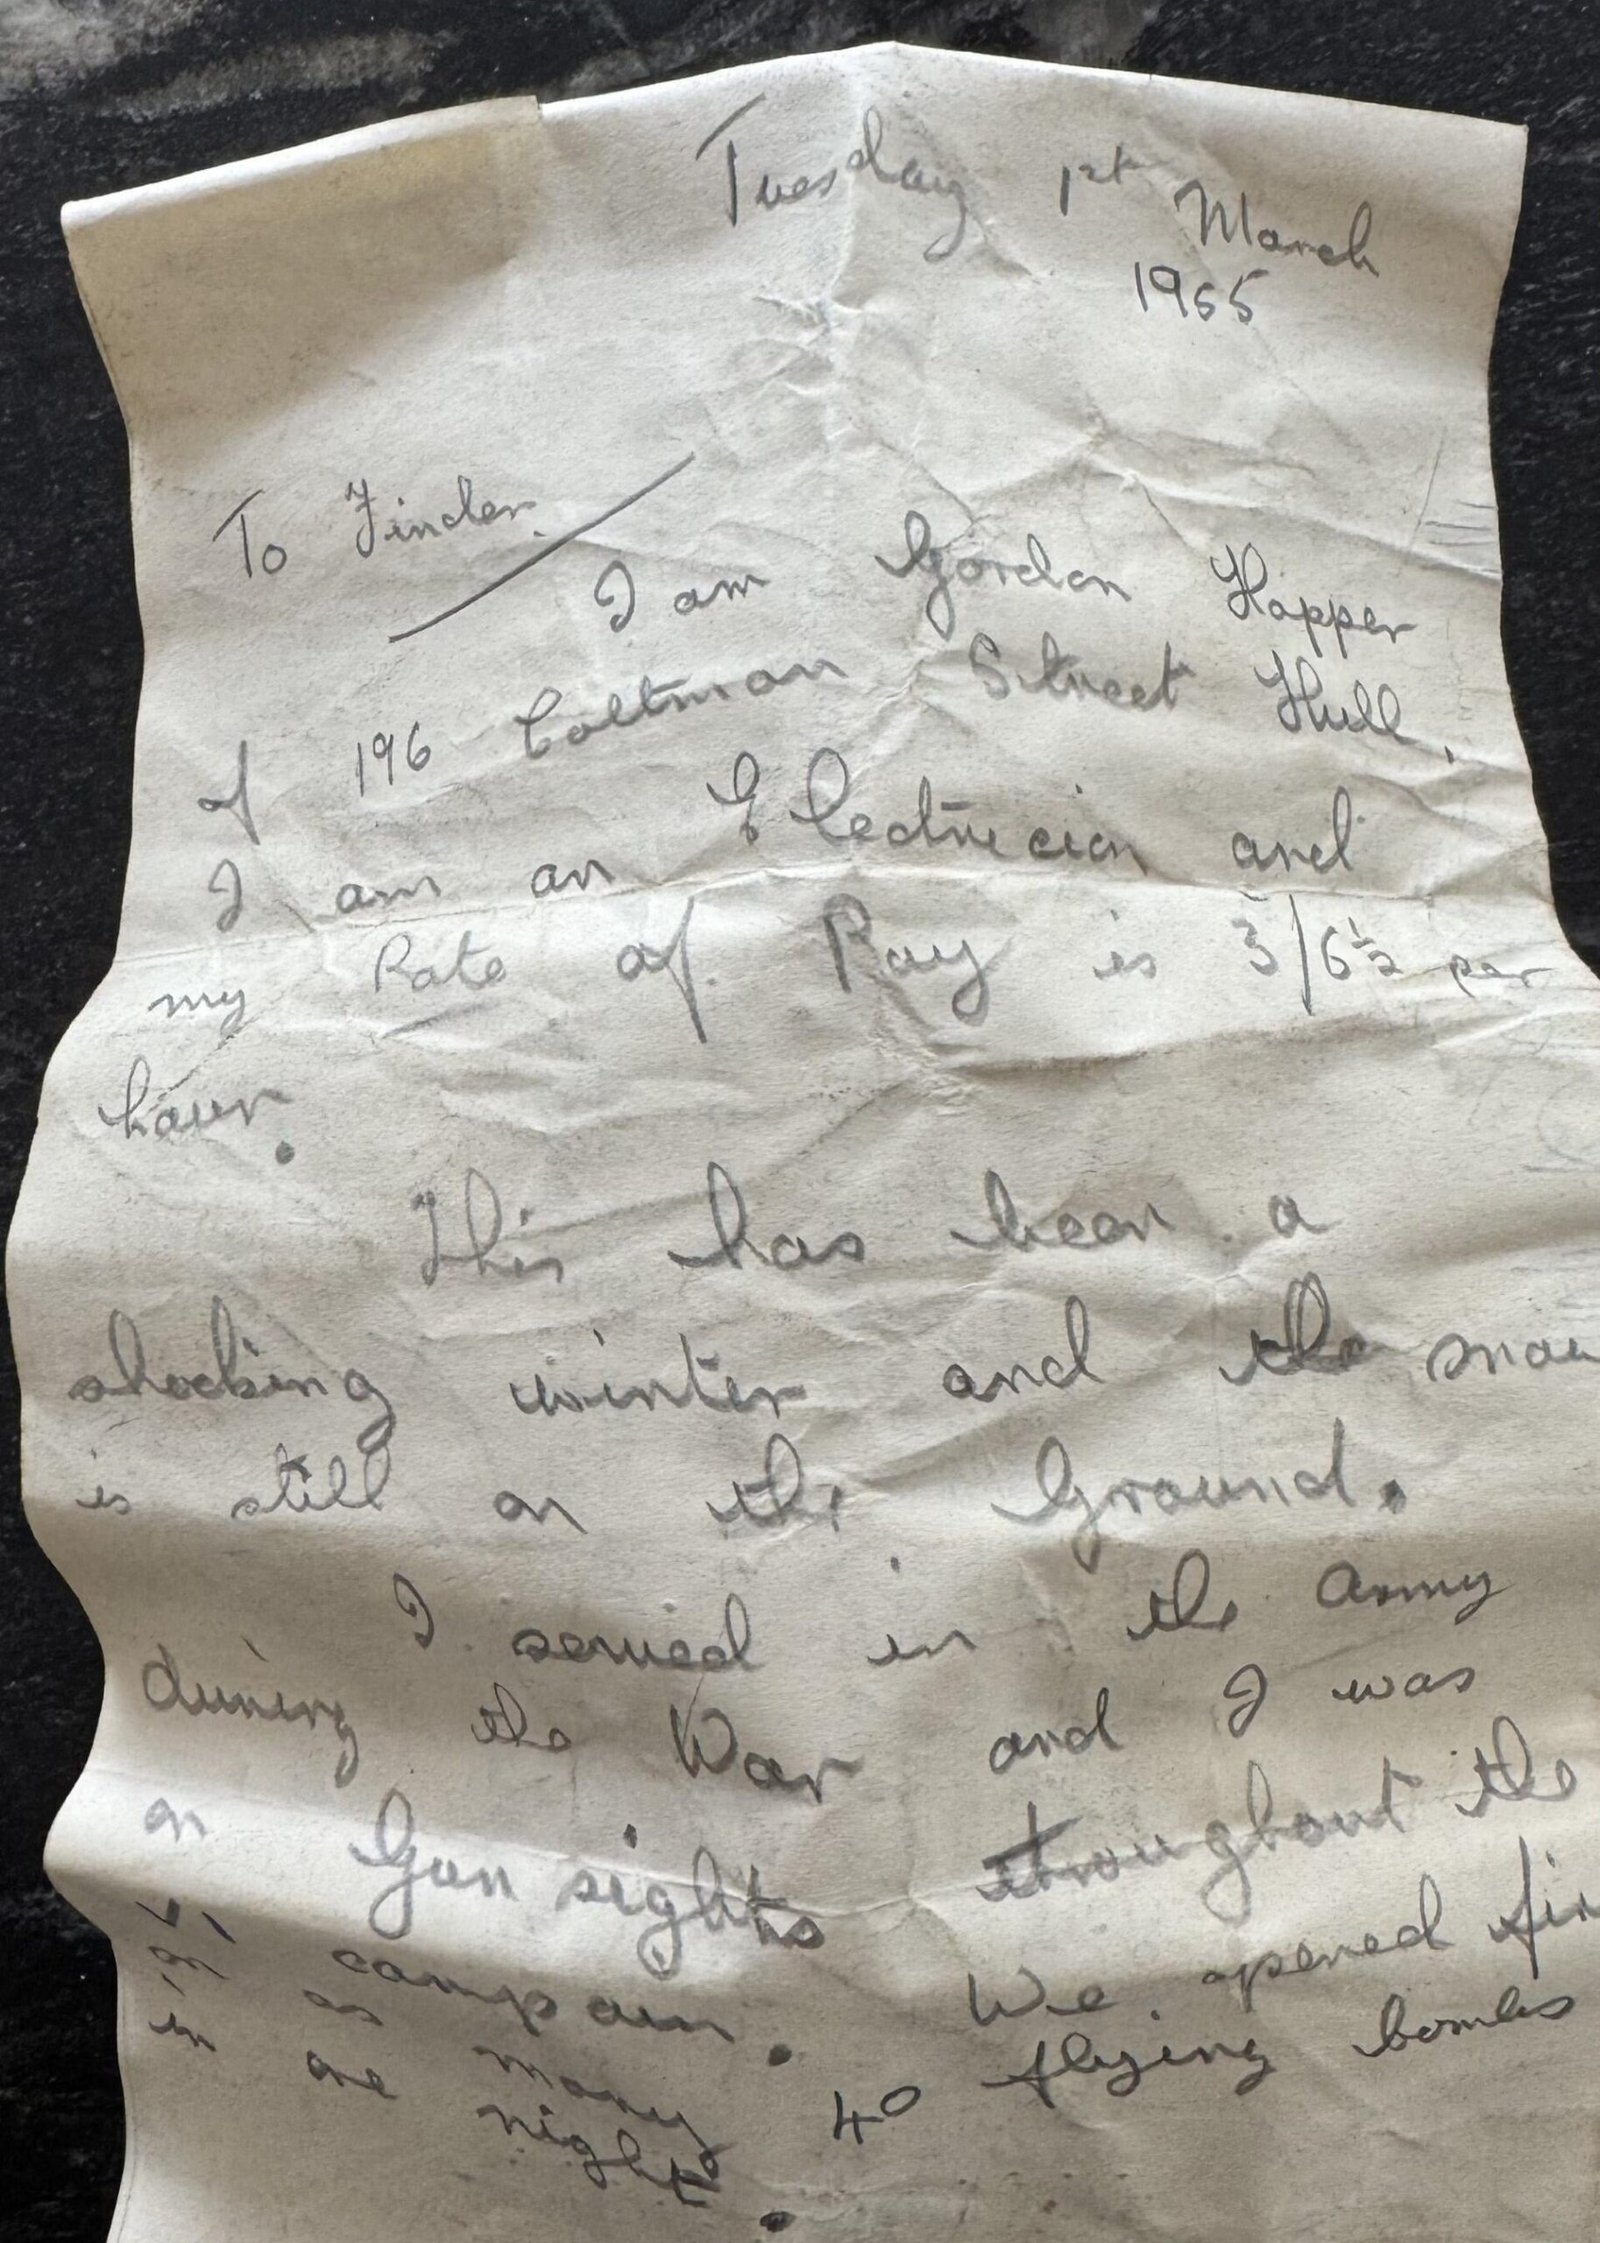 Tuesday 1st March
1955
To Finder.
I am Gordon Hopper
of 196 Coltman Street Hull.
I am an Electrician and
my Rate of Pay is 3/6½ per
hour.
This has been a
shocking winter and the snow
is still on the Ground.
I served in the army
during the War and I was
on Gun sights throughout the
V1 campain. We opened fire
on as many 40 flying bombs
in one night.